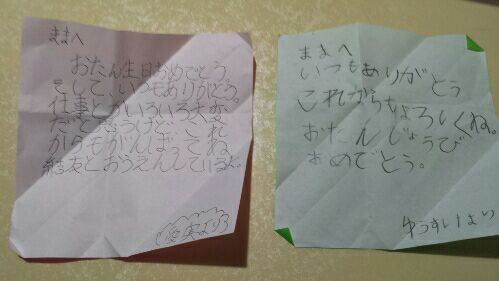 ままへ
おたん生日おめでとう。
そして、いつもありがとう。
仕事とかいろいろ大変
だと思うけど、これ
からもがんばってね
とおうえんしているよ。
より
ままへ
いつもありがとう
これからもよろしくね。
おたんじょうび
おめでとう。
ゆうすけより